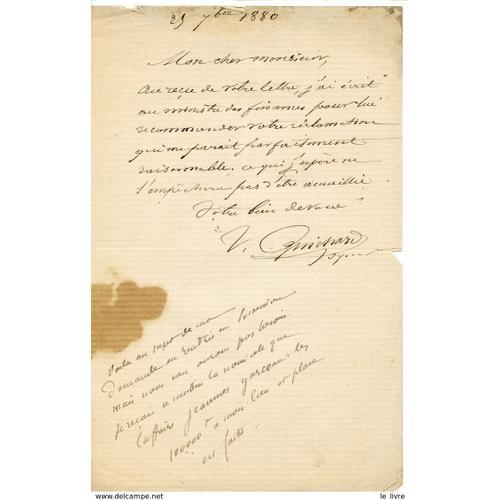 25 7bre 1880
Mon cher monsieur,
au reçu de votre lettre, j'ai écrit
au ministre des finances pour lui
recommander votre réclamation
qui me parait parfaitement
raisonnable. ce qui j'espère ne
l'empêchera pas d'être accueillie
Votre bien dévoué
V. Guichard
au sujet de
demande en
mais nous n'en aurons pas besoin
la nouvelle que
l'affaire Jeannes garçons des
100000 f a mon lieu et place
est faite
www.delcampe.net
le livre